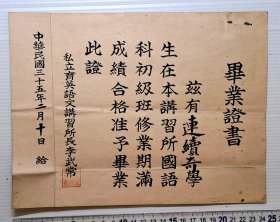 畢業證書
茲有連續奇學
生在本講習所國語
科初級班修業期滿
成績合格准予畢業
此證
私立育英語文講習所長李武常
中華民國三十五年二月十日 給